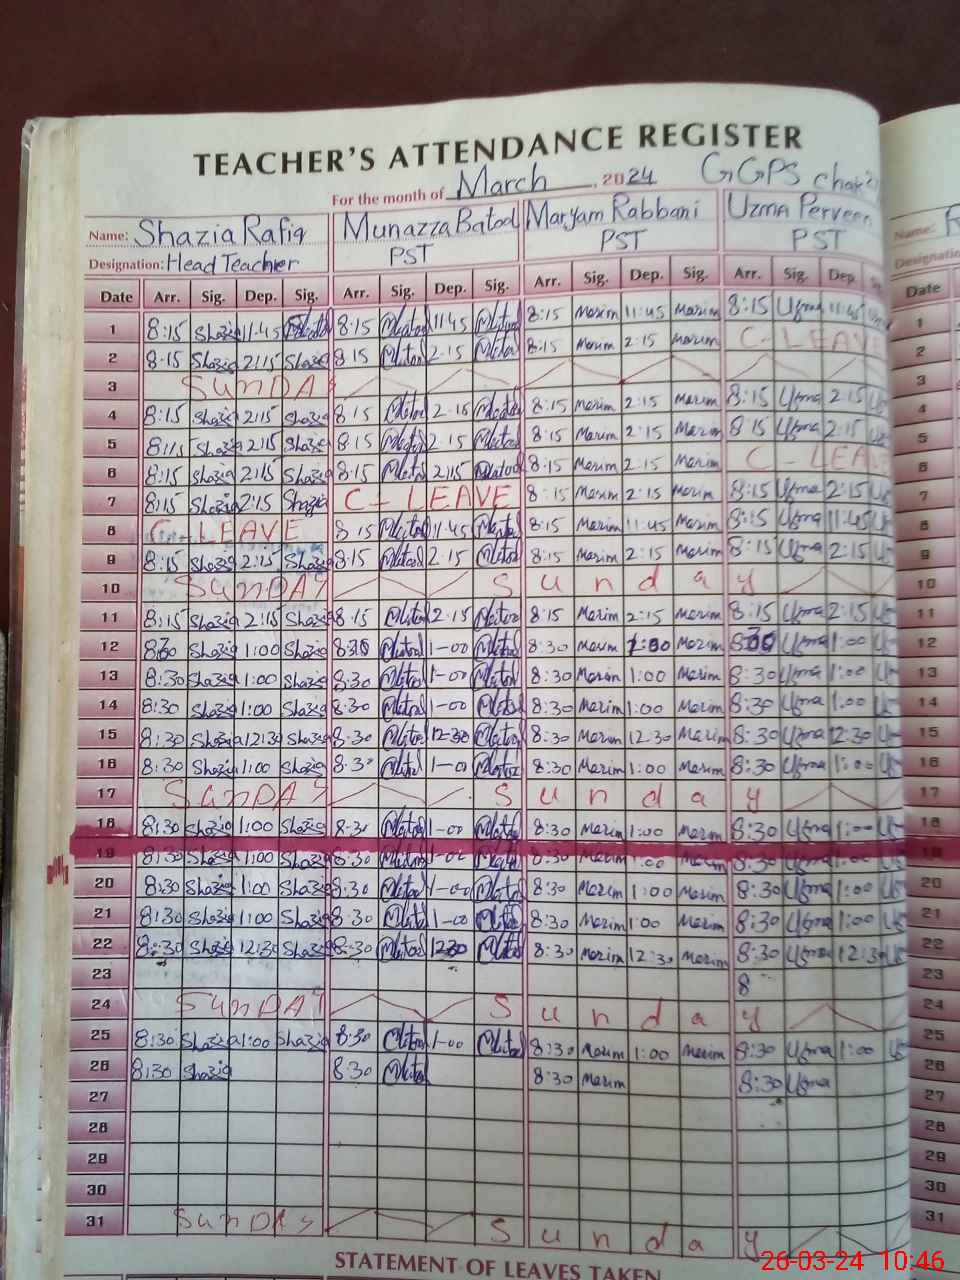 TEACHER'S ATTENDANCE REGISTER
For the month of March, 2024 GGPS Chak
Name: Shazia Rafiq Munazza Batool Maryam Rabbani Uzma Perveen
Designation: Head Teacher PST PST PST
Date Arr. Sig. Dep. Sig. Arr. Sig. Dep. Sig. Arr. Sig. Dep. Sig. Arr. Sig. Dep. Date
1 8:15 Shazia 11:45 8:15 11:45 8:15 Marim 11:45 Marim 8:15 Uzma 11:45 1
2 8:15 Shazia 2:15 Shazia 8:15 2:15 8:15 Marim 2:15 Marim C-LEAVE 2
3 SUNDAY 3
4 8:15 Shazia 2:15 Shazia 8:15 2:15 8:15 Marim 2:15 Marim 8:15 Uzma 2:15 4
5 8:15 Shazia 2:15 Shazia 8:15 2:15 8:15 Marim 2:15 Marim 8:15 Uzma 2:15 5
6 8:15 Shazia 2:15 Shazia 8:15 2:15 8:15 Marim 2:15 Marim C-LEAVE 6
7 8:15 Shazia 2:15 Shazia C-LEAVE 8:15 Marim 2:15 Marim 8:15 Uzma 2:15 7
8 C-LEAVE 8:15 11:45 8:15 Marim 11:45 Marim 8:15 Uzma 11:45 8
9 8:15 Shazia 2:15 Shazia 8:15 2:15 8:15 Marim 2:15 Marim 8:15 Uzma 2:15 9
10 SUNDAY Sunday 10
11 8:15 Shazia 2:15 Shazia 8:15 2:15 8:15 Marim 2:15 Marim 8:15 Uzma 2:15 11
12 8:30 Shazia 1:00 Shazia 8:30 1-00 8:30 Marim 1:00 Marim 8:30 Uzma 1:00 12
13 8:30 Shazia 1:00 Shazia 8:30 1-00 8:30 Marim 1:00 Marim 8:30 Uzma 1:00 13
14 8:30 Shazia 1:00 Shazia 8:30 1-00 8:30 Marim 1:00 Marim 8:30 Uzma 1:00 14
15 8:30 Shazia 12:30 Shazia 8:30 12-30 8:30 Marim 12:30 Marim 8:30 Uzma 12:30 15
16 8:30 Shazia 1:00 Shazia 8:30 1-00 8:30 Marim 1:00 Marim 8:30 Uzma 1:00 16
17 SUNDAY Sunday 17
18 8:30 Shazia 1:00 Shazia 8:30 1-00 8:30 Marim 1:00 Marim 8:30 Uzma 1:00 18
19 8:30 Shazia 1:00 Shazia 8:30 1-00 8:30 Marim 1:00 Marim 8:30 Uzma 1:00 19
20 8:30 Shazia 1:00 Shazia 8:30 1-00 8:30 Marim 1:00 Marim 8:30 Uzma 1:00 20
21 8:30 Shazia 1:00 Shazia 8:30 1-00 8:30 Marim 1:00 Marim 8:30 Uzma 1:00 21
22 8:30 Shazia 12:30 Shazia 8:30 12-30 8:30 Marim 12:30 Marim 8:30 Uzma 12:30 22
23 8 23
24 SUNDAY Sunday 24
25 8:30 Shazia 1:00 Shazia 8:30 1-00 8:30 Marim 1:00 Marim 8:30 Uzma 1:00 25
26 8:30 Shazia 8:30 8:30 Marim 8:30 Uzma 26
27 27
28 28
29 29
30 30
31 SUNDAY Sunday 31
STATEMENT OF LEAVES TAKEN
26-03-24 10:46